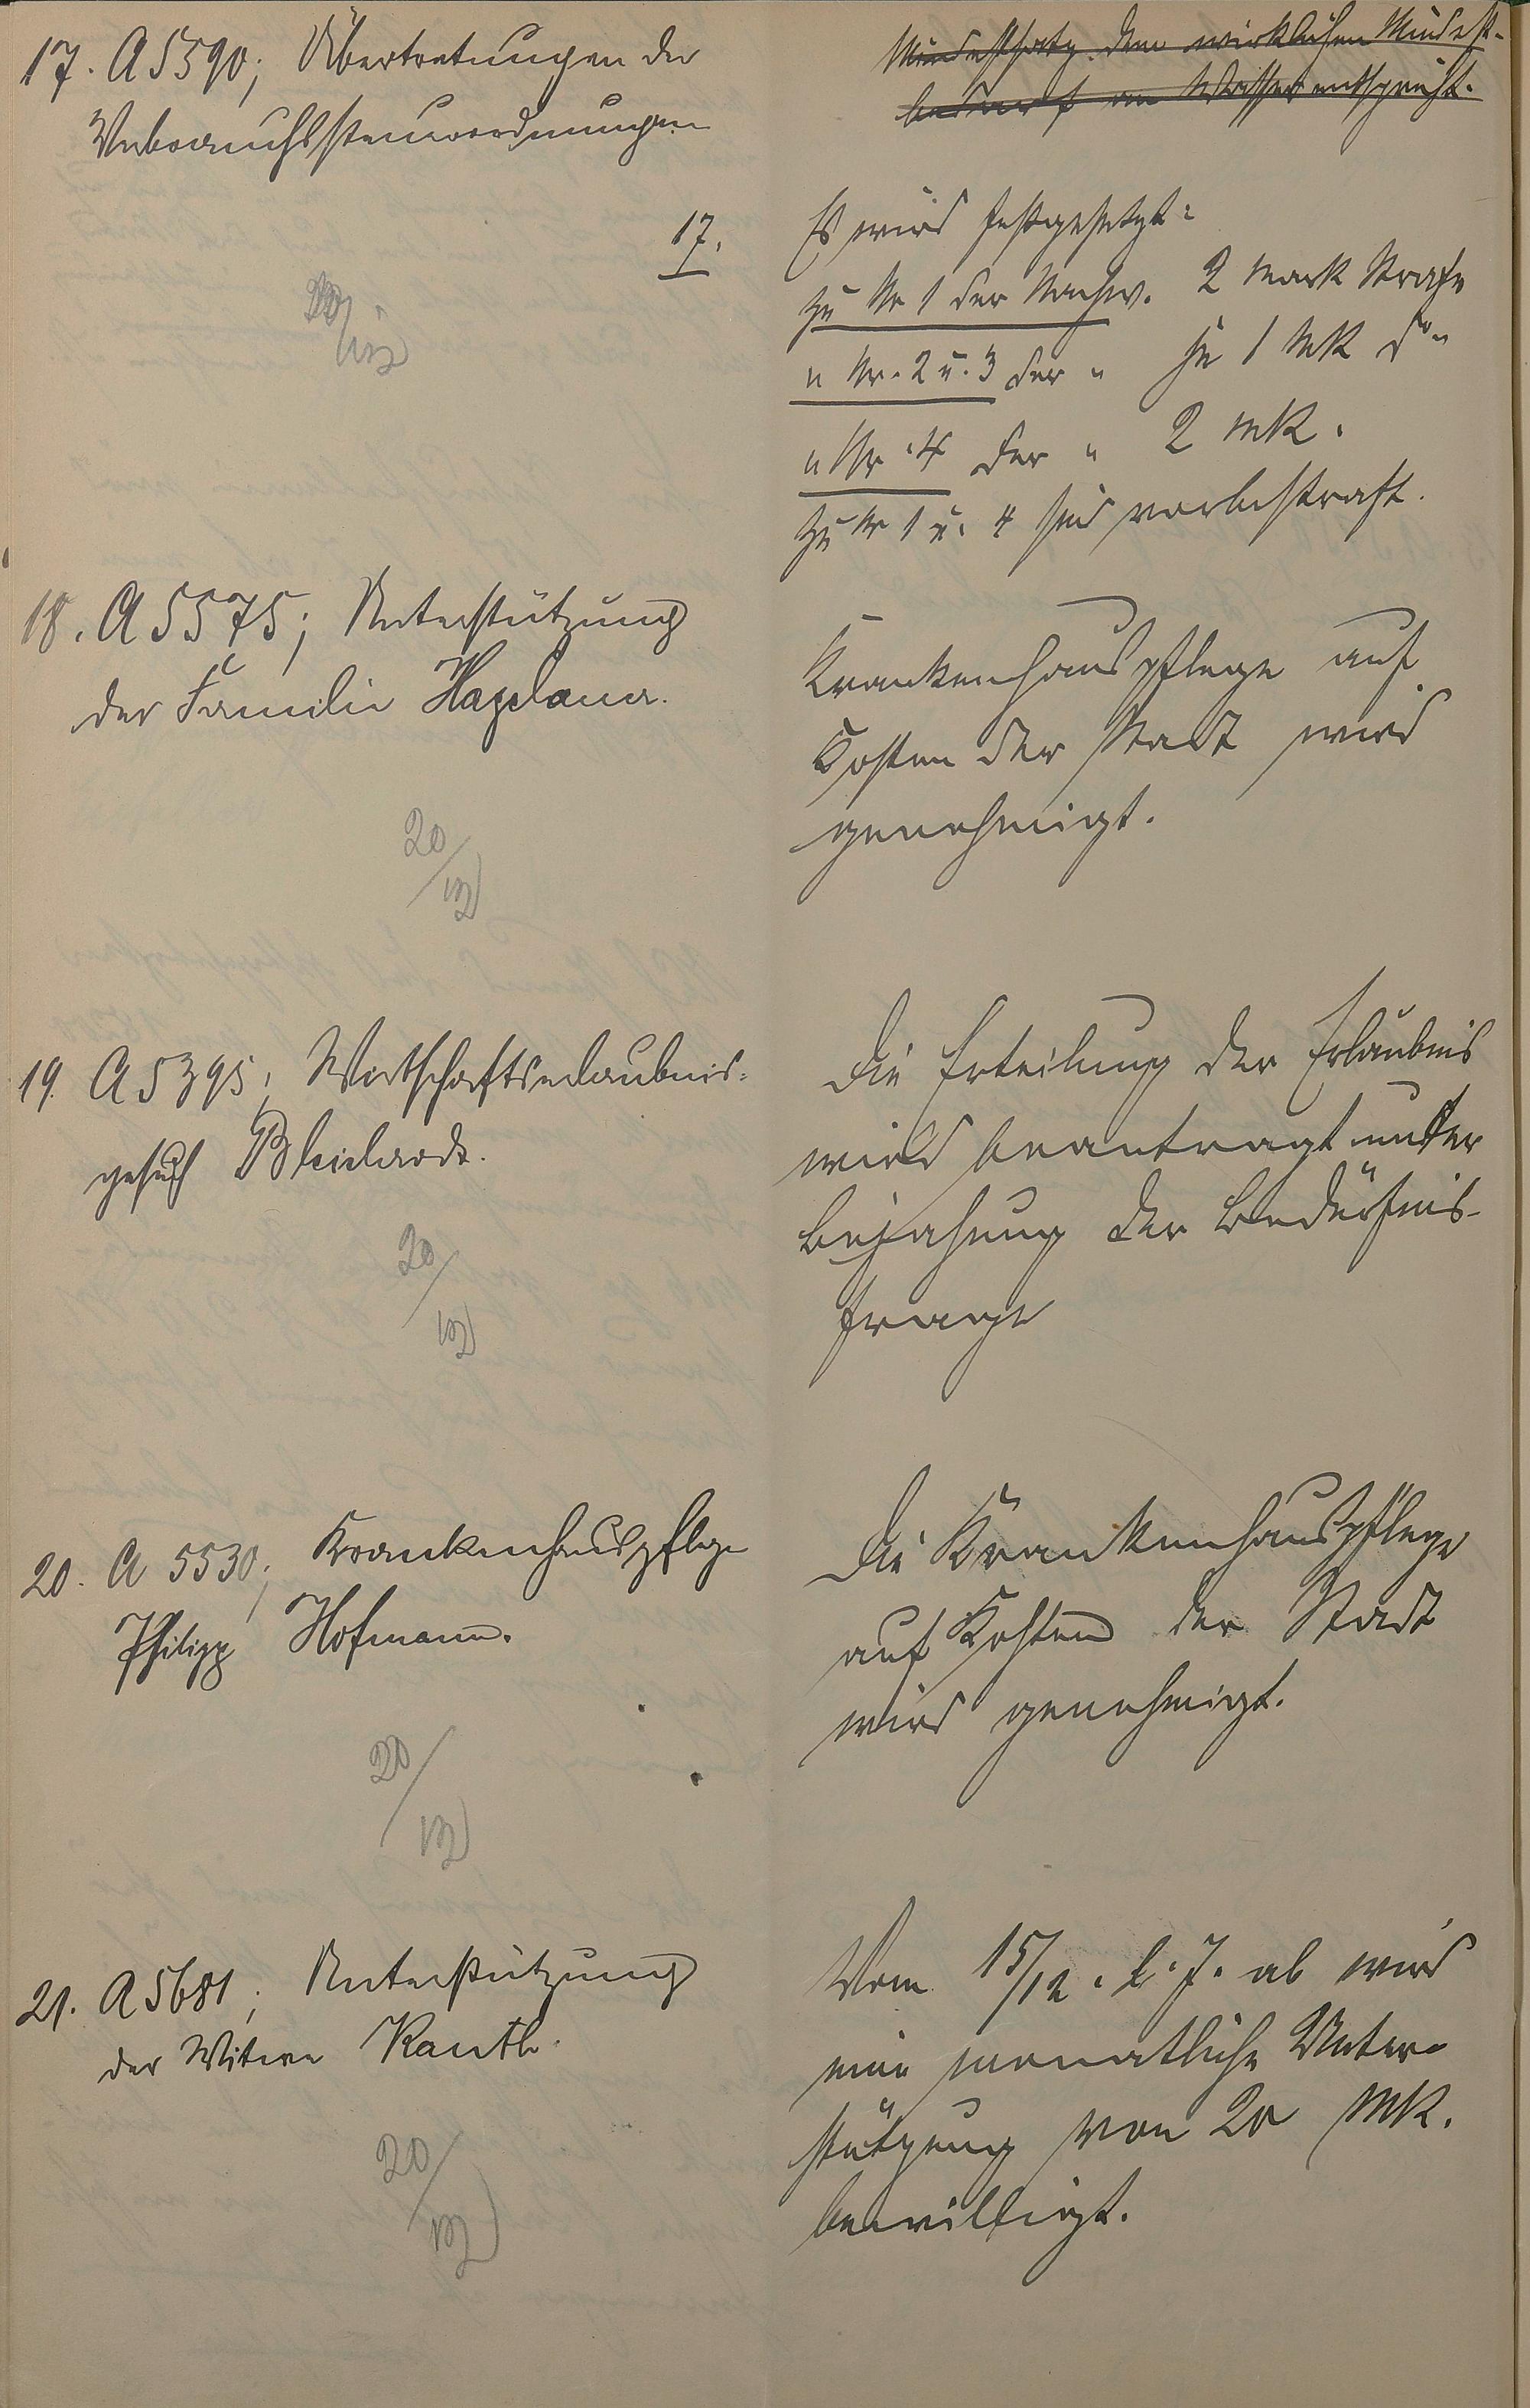 Mindestsatz dem wirklichen Mindest-
bedarf an Wasser entspricht.
17. A 5390; Übertretungen der
Verbrauchssteuerordnungen
17. Es wird festgesetzt:
zu Nr 1 der Nachw. 2 Mark Strafe
" Nr. 2 u. 3 der " je 1 MK do
" Nr. 4 der " 2 MK.
zu Nr 1 u. 4 sind vorbestraft.
20/12
18. A 5575; Unterstützung
der Familie
Krankenhauspflege auf
Kosten der Stadt wird
genehmigt.
20/12
19. A 5395; Wirtschaftserlaubnis-
gesuch
Die Erteilung der Erlaubnis
wird beantragt unter
Bejahung der Bedürfnis-
frage
20/12
20. A 5530; Krankenhauspflege
Philipp Hofmann.
Die Krankenhauspflege
auf Kosten der Stadt
wird genehmigt.
20/12
21. A 5681; Unterstützung
der Witwe
Vom 15/12. l. J. ab wird
eine monatliche Unter-
stützung von 20 MK.
bewilligt.
20/12